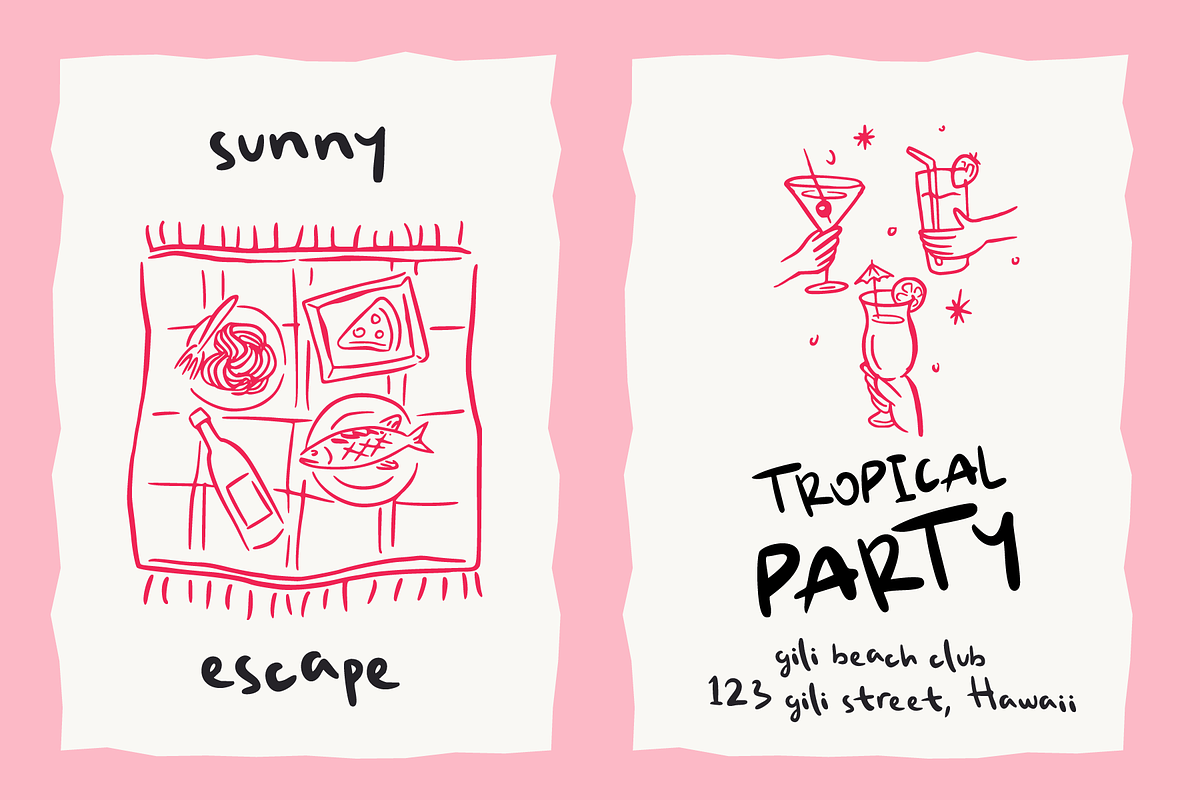 sunny
escape
TROPICAL
PARTY
gili beach club
123 gili street, Hawaii